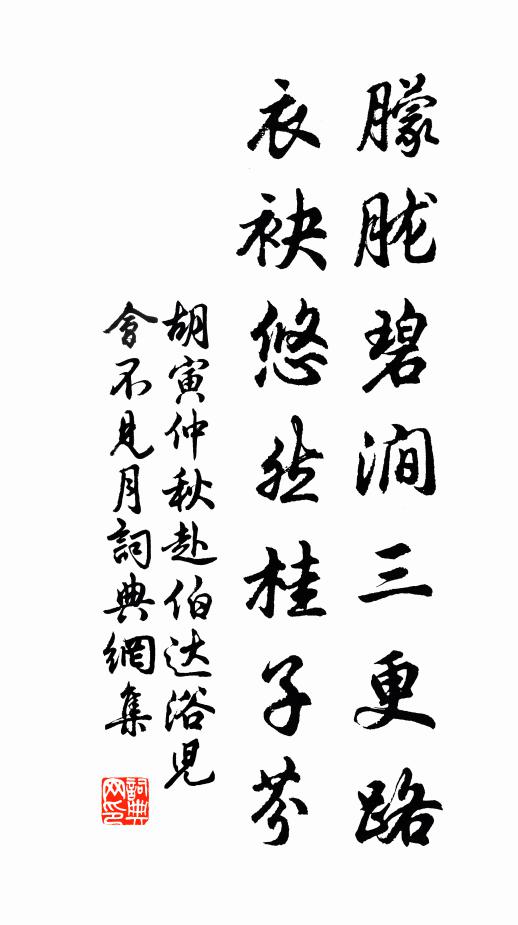 朦胧碧澗三更路
衣袂悠然桂子芬
胡寅仲秋赴伯达浴児
會不見月詞典網集
詞典
网印